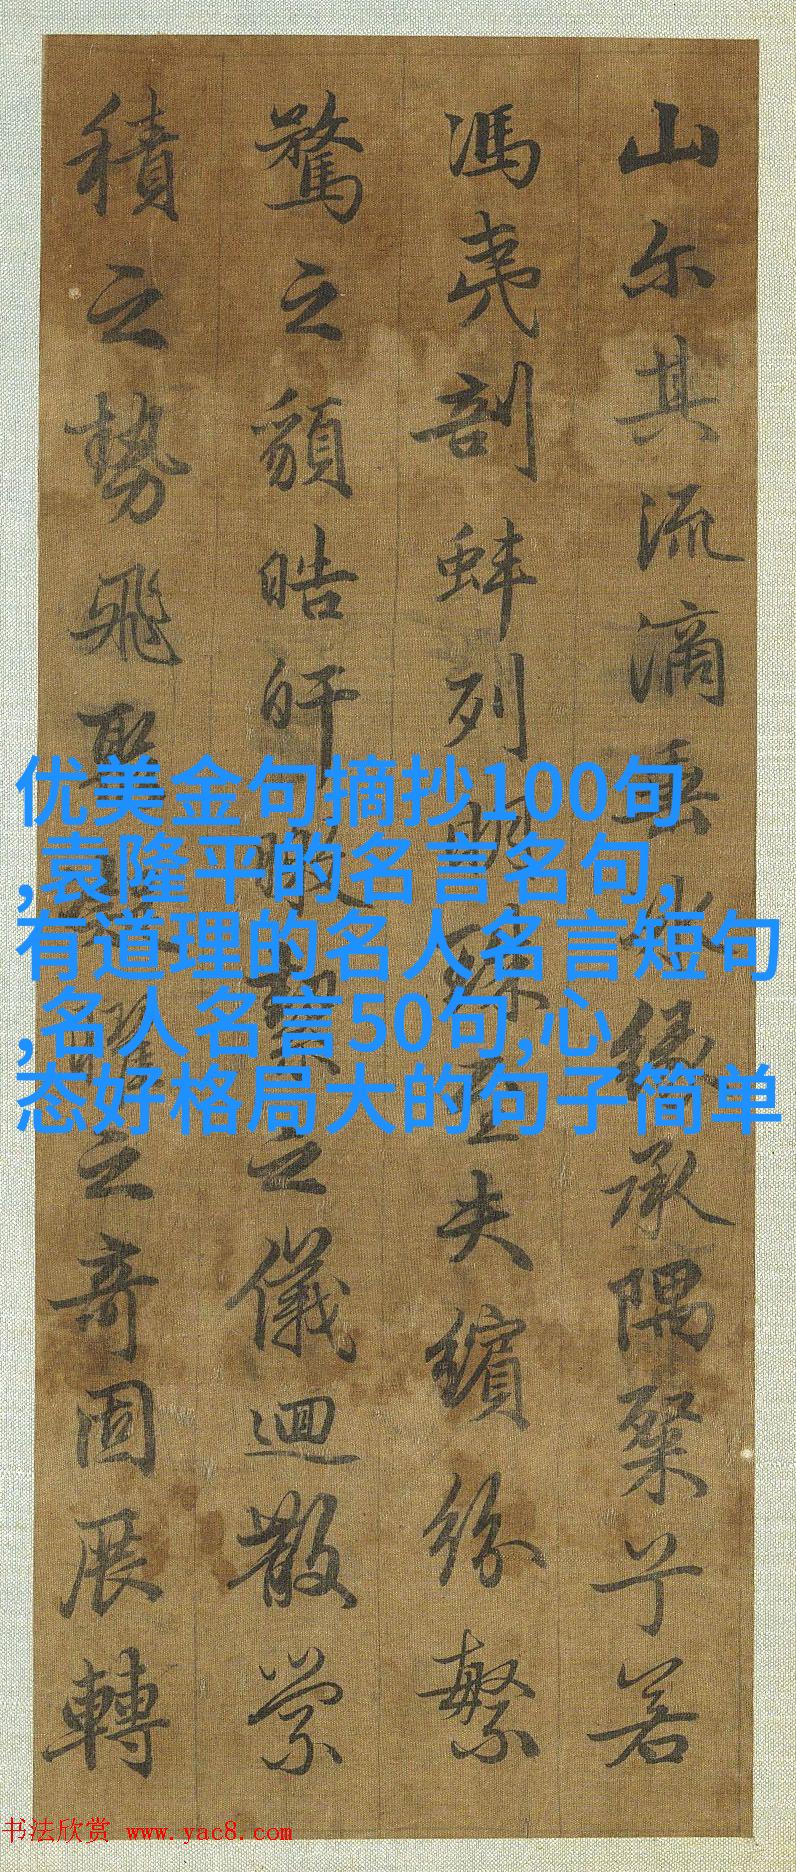 山尔其流滴垂冰緣承隅粲兮若
馮夷剖蚌列明珠至夫繽紛繁
騖之䫉皓皔曒潔之儀迴散縈
積之勢飛聚凝曜之奇固展轉
优美金句摘抄100句
,袁隆平的名言名句,
有道理的名人名言短句
,名人名言50句,心
态好格局大的句子简单
书法欣赏 www.yac8.com